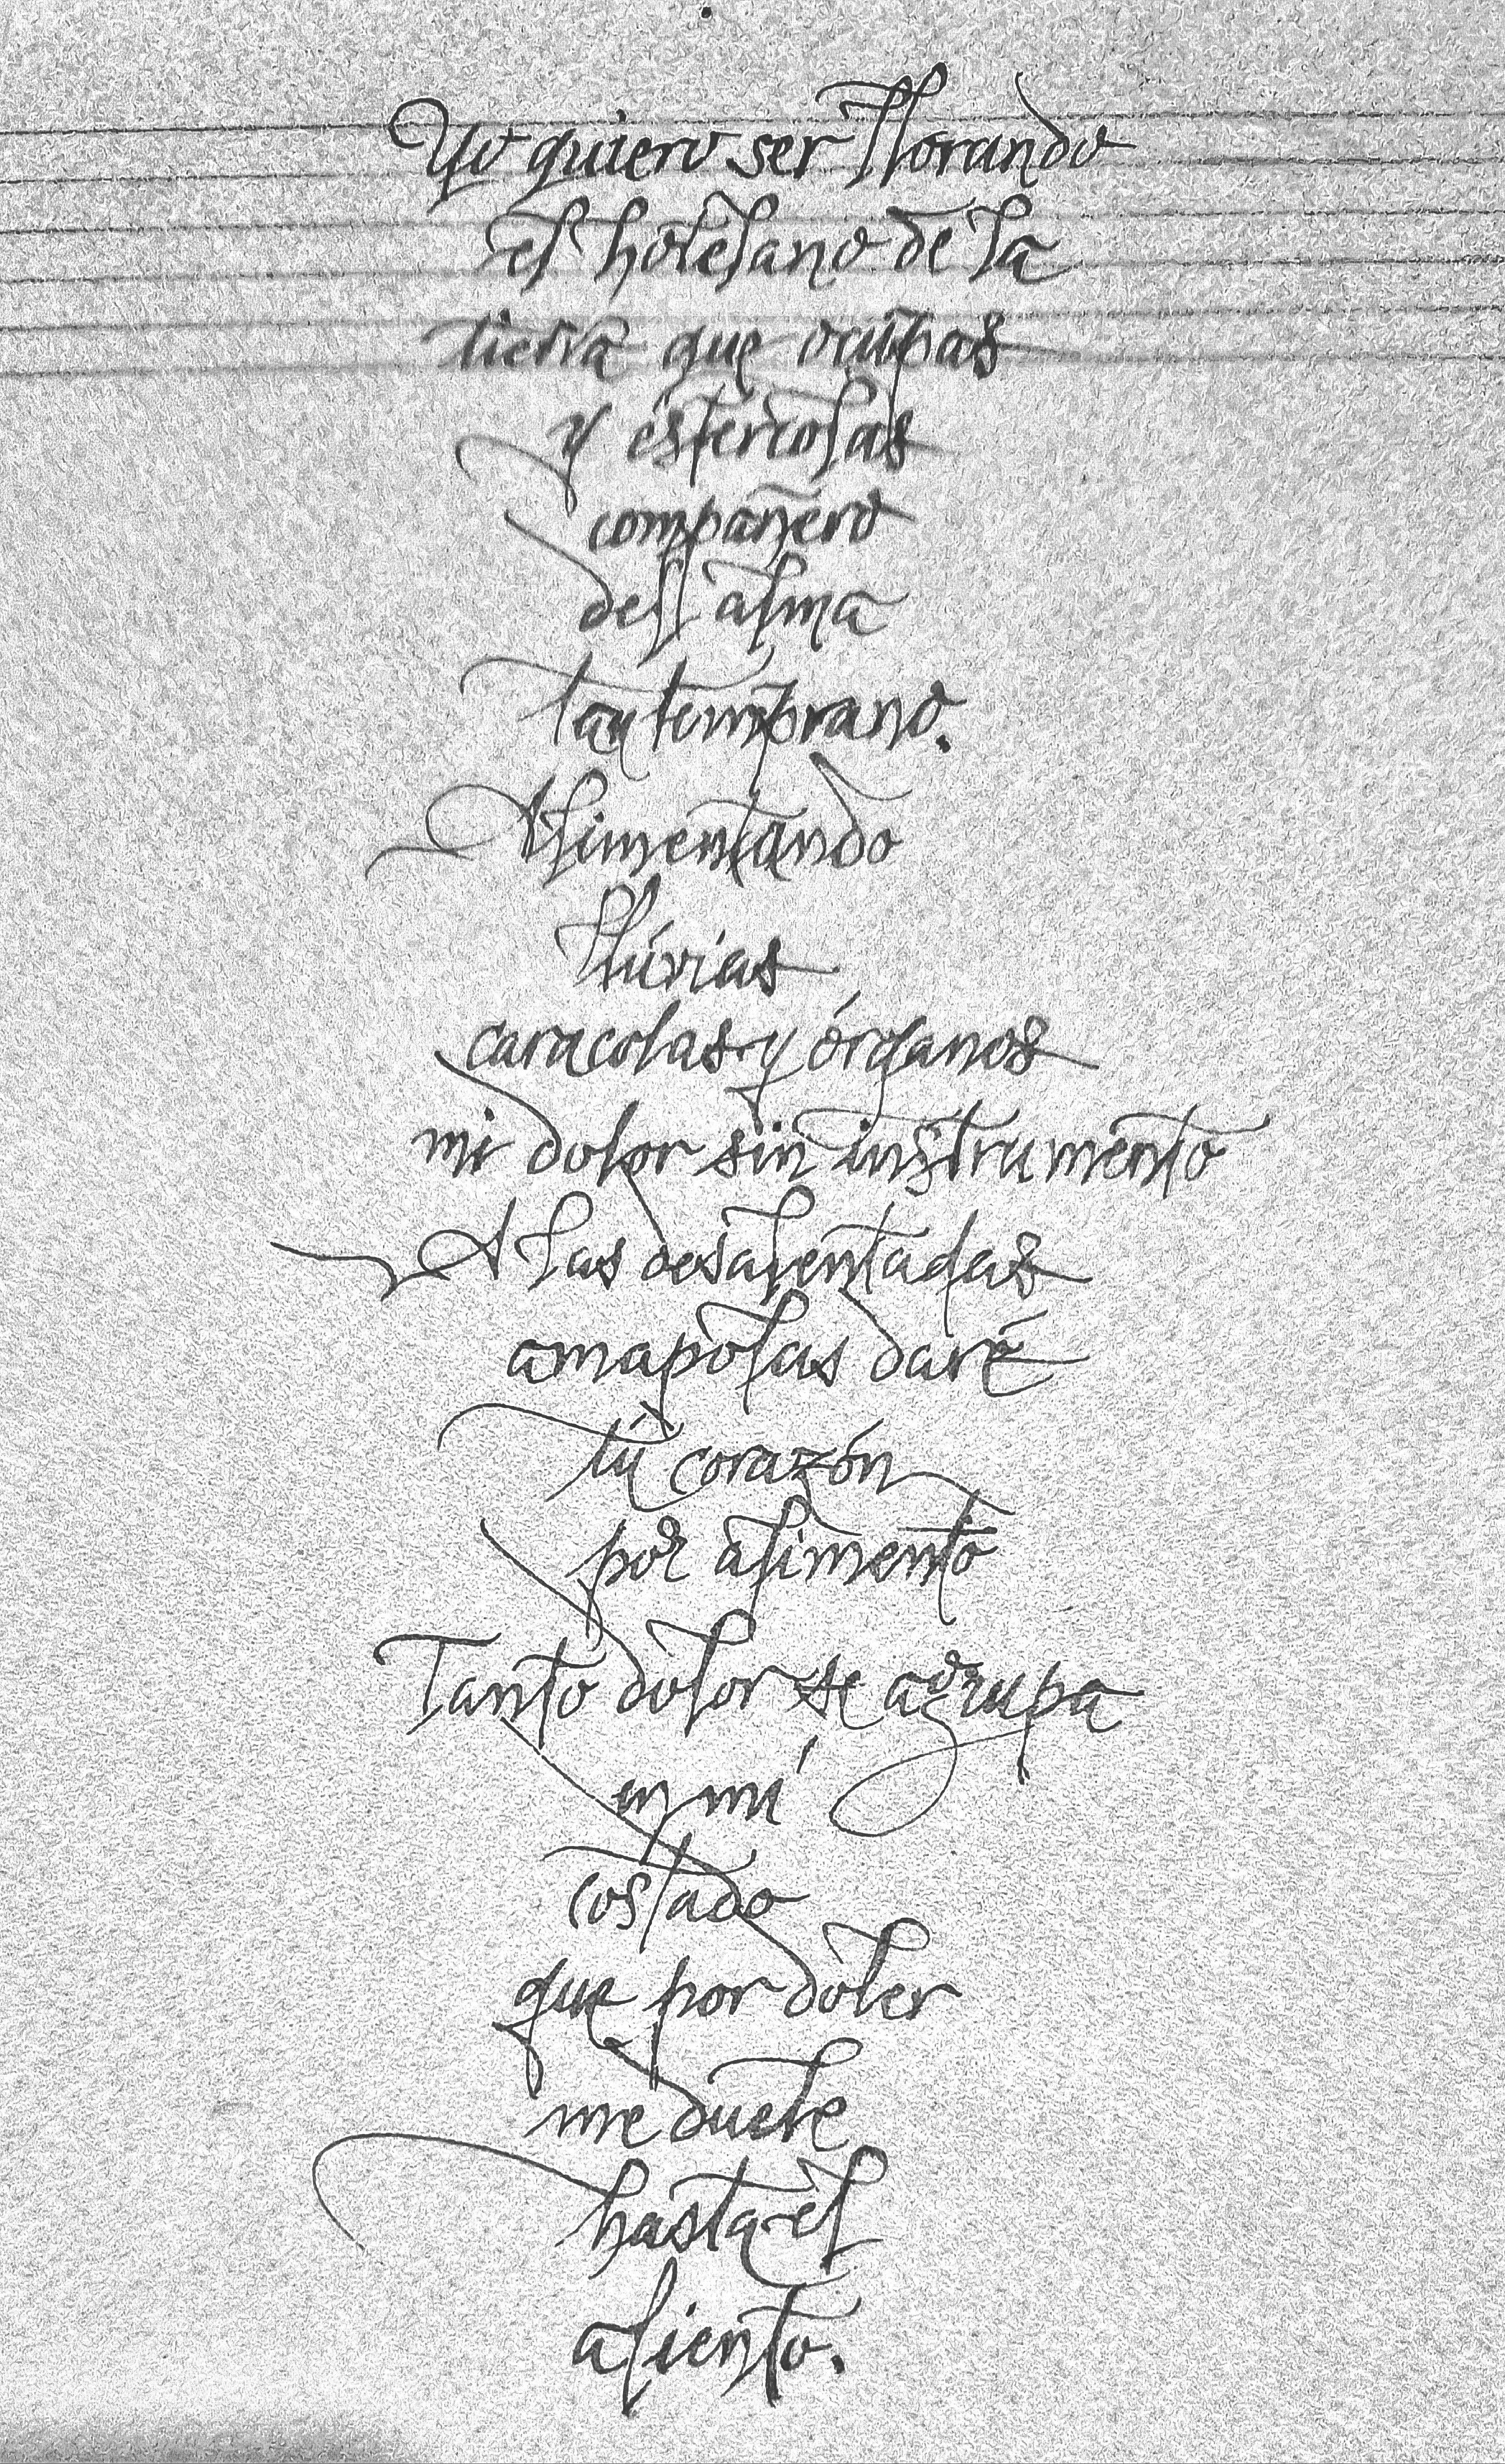 Yo quiero ser llorando
el hotelano de la
tierra que ocupas
y estercolas
compañero
del alma
tan temprano.
Alimentando
llúvias
caracolas y órganos
mi dolor sin instrumento
A las desalentadas
amapolas daré
tú corazón
por alimento
Tanto dolor se agrupa
en mí
costado
que por doler
me duele
hasta el
aliento.